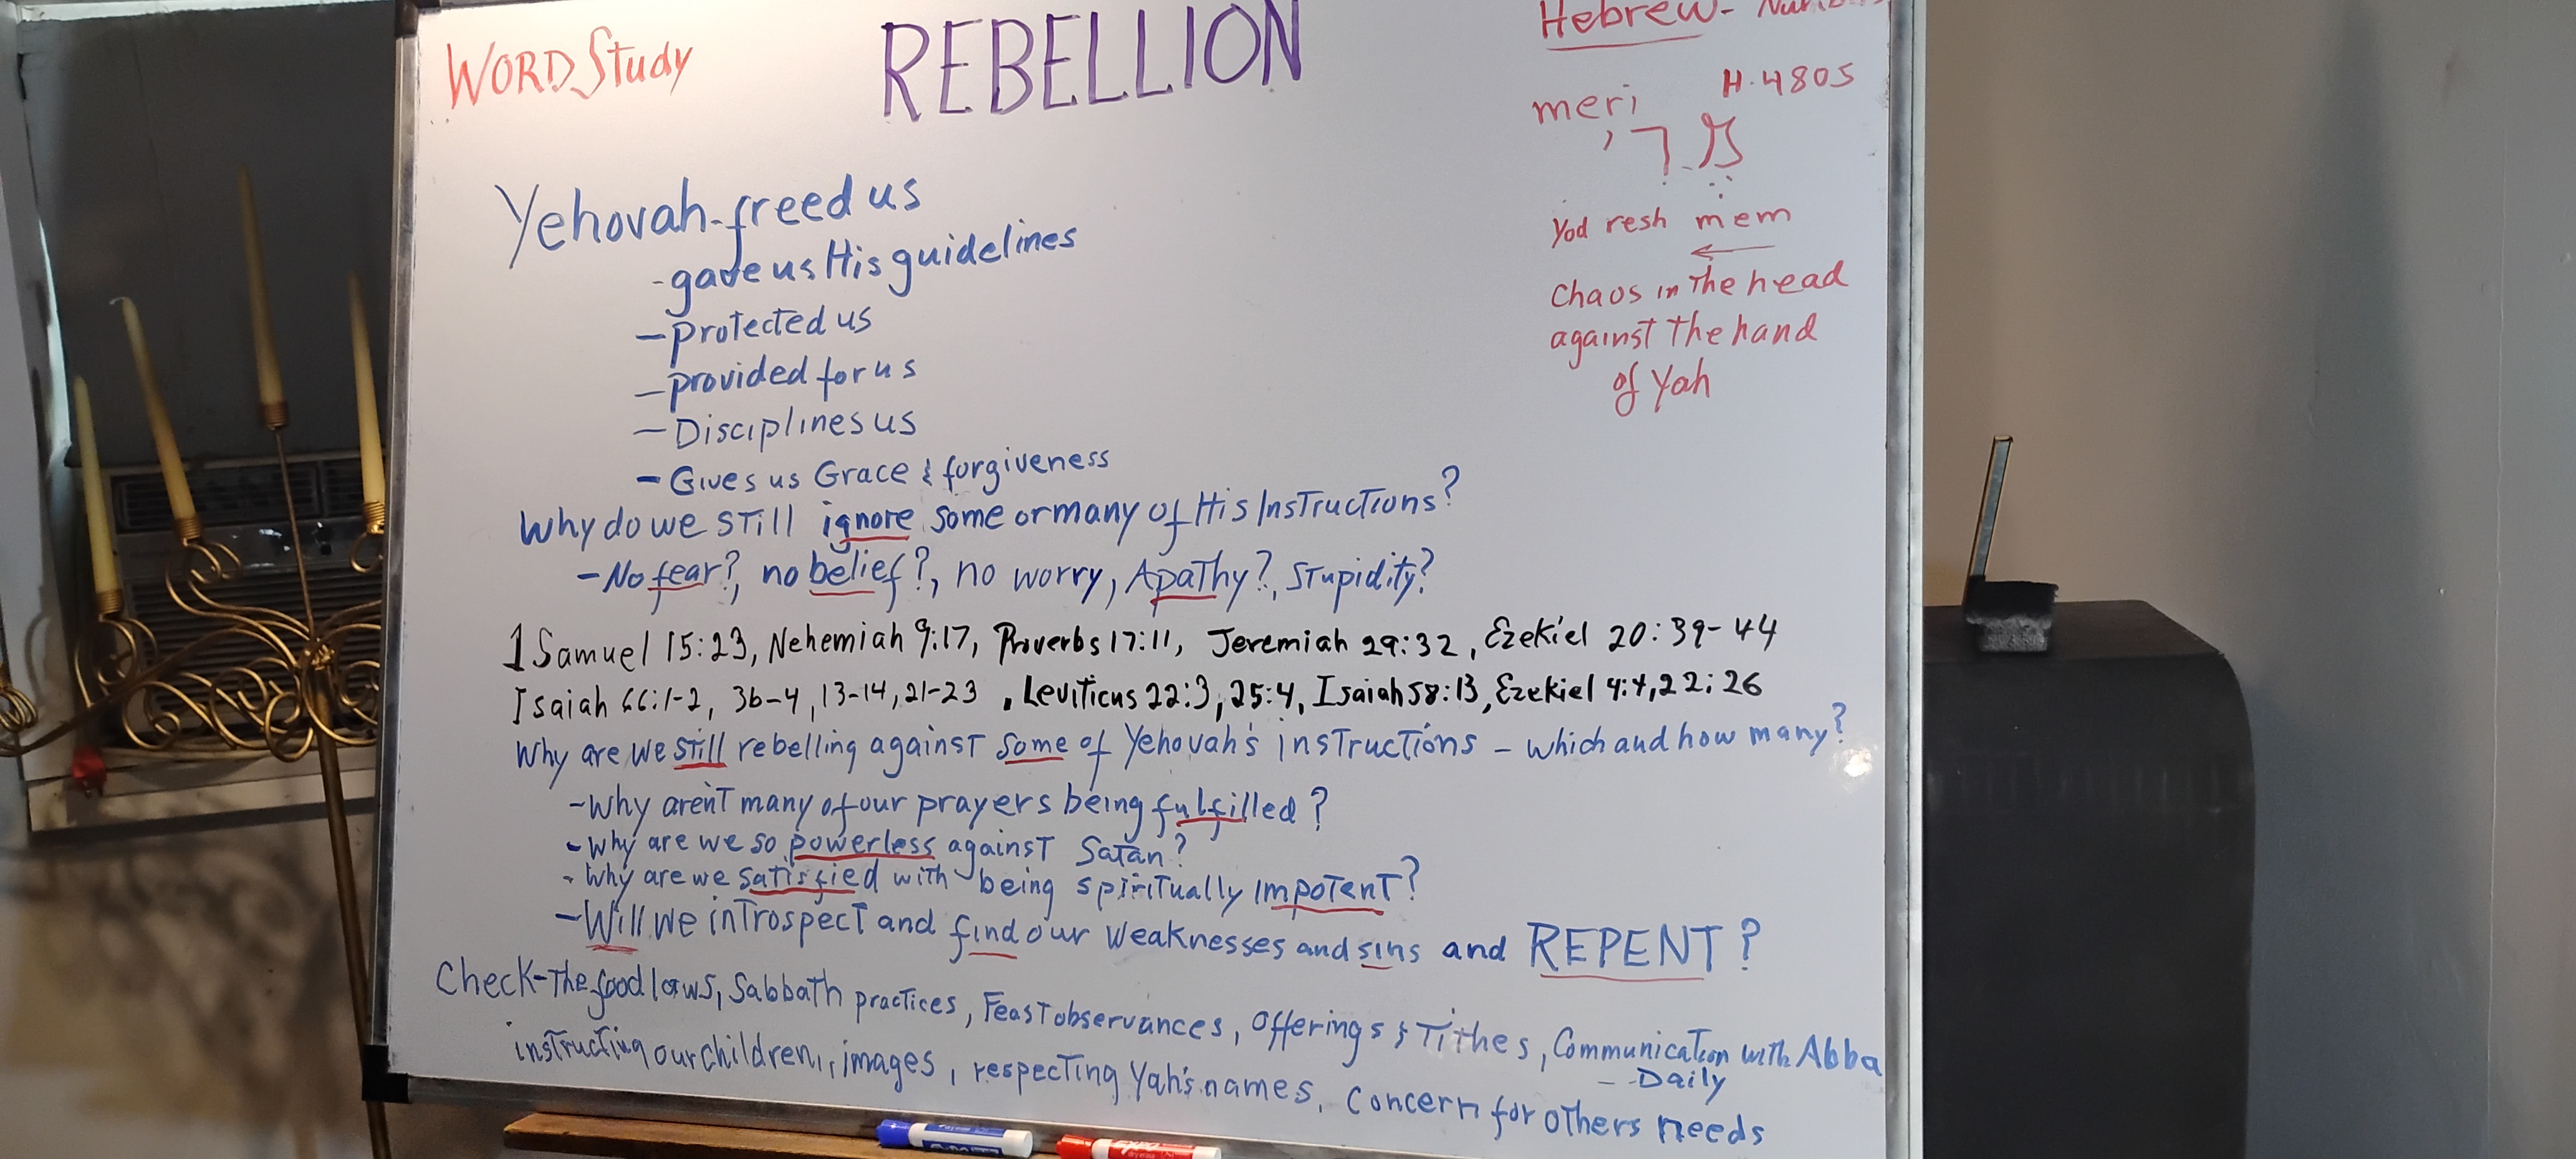 WORD Study
REBELLION
Hebrew-
meri H.4805
מרי
Yod resh mem
←
Chaos in The head
against The hand
of Yah
Yehovah-freed us
-gave us His guidelines
-protected us
-provided for us
-Disciplines us
-Gives us Grace & forgiveness
Why do we still ignore some or many of His Instructions?
-No fear?, no belief?, no worry, Apathy?, Stupidity?
1 Samuel 15:23, Nehemiah 9:17, Proverbs 17:11, Jeremiah 29:32, Ezekiel 20:39-44
Isaiah 66:1-2, 3b-4, 13-14, 21-23, Leviticus 22:3, 25:4, Isaiah 58:13, Ezekiel 4:4, 22:26
Why are we still rebelling against some of Yehovah's instructions - which and how many?
-Why aren't many of our prayers being fulfilled?
-Why are we so powerless against Satan?
-Why are we satisfied with being spiritually impotent?
-Will we introspect and find our weaknesses and sins and REPENT?
Check-The food laws, Sabbath practices, Feast observances, Offerings & Tithes, Communication with Abba
--Daily
instructing our children, images, respecting Yah's names, Concern for others needs